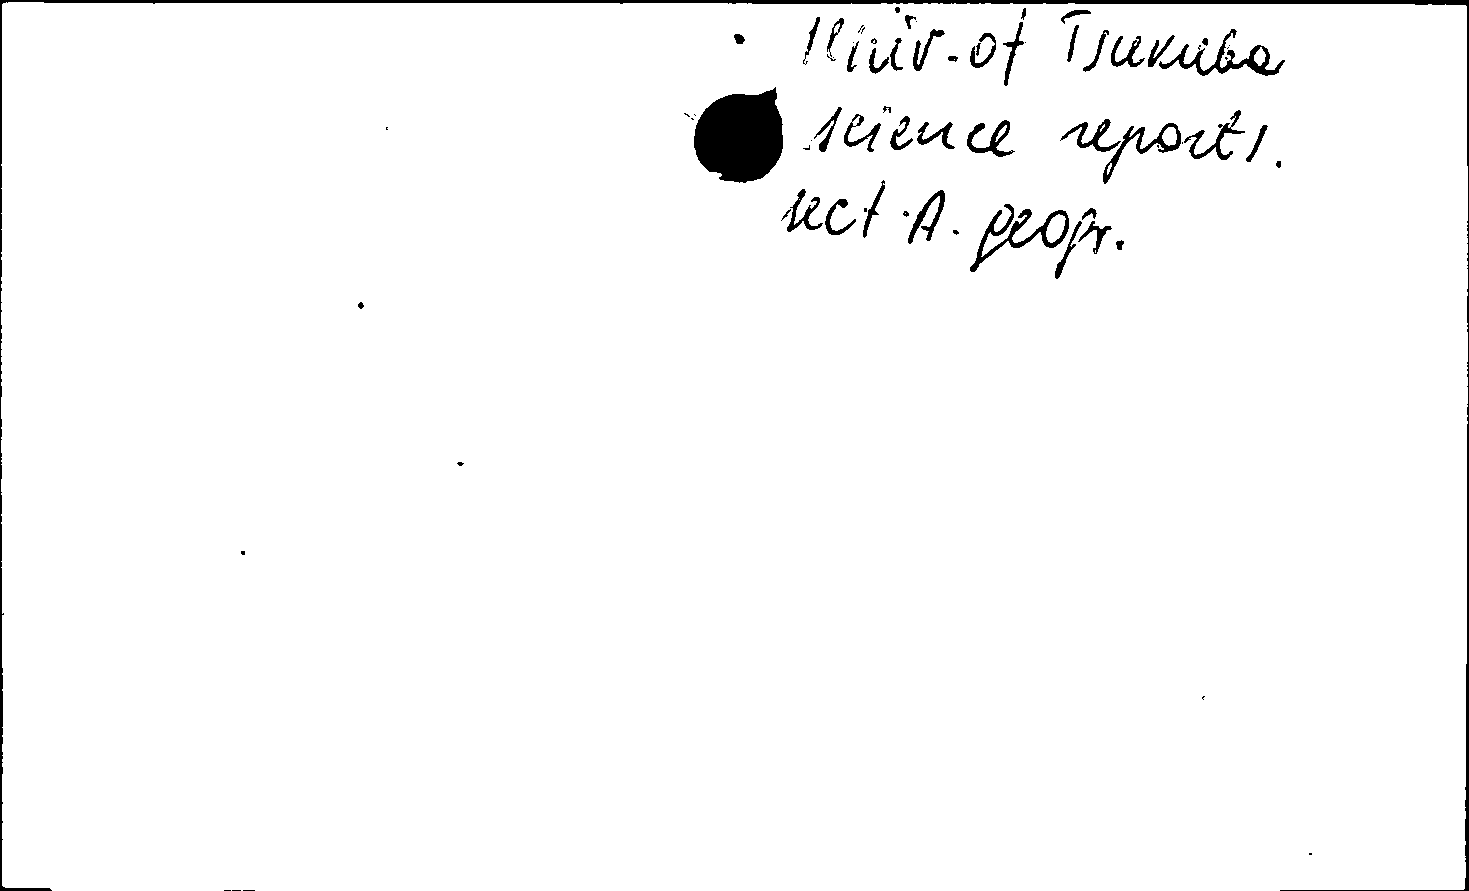 Univ. of Tsukuba
science reports.
sect. A. geogr.